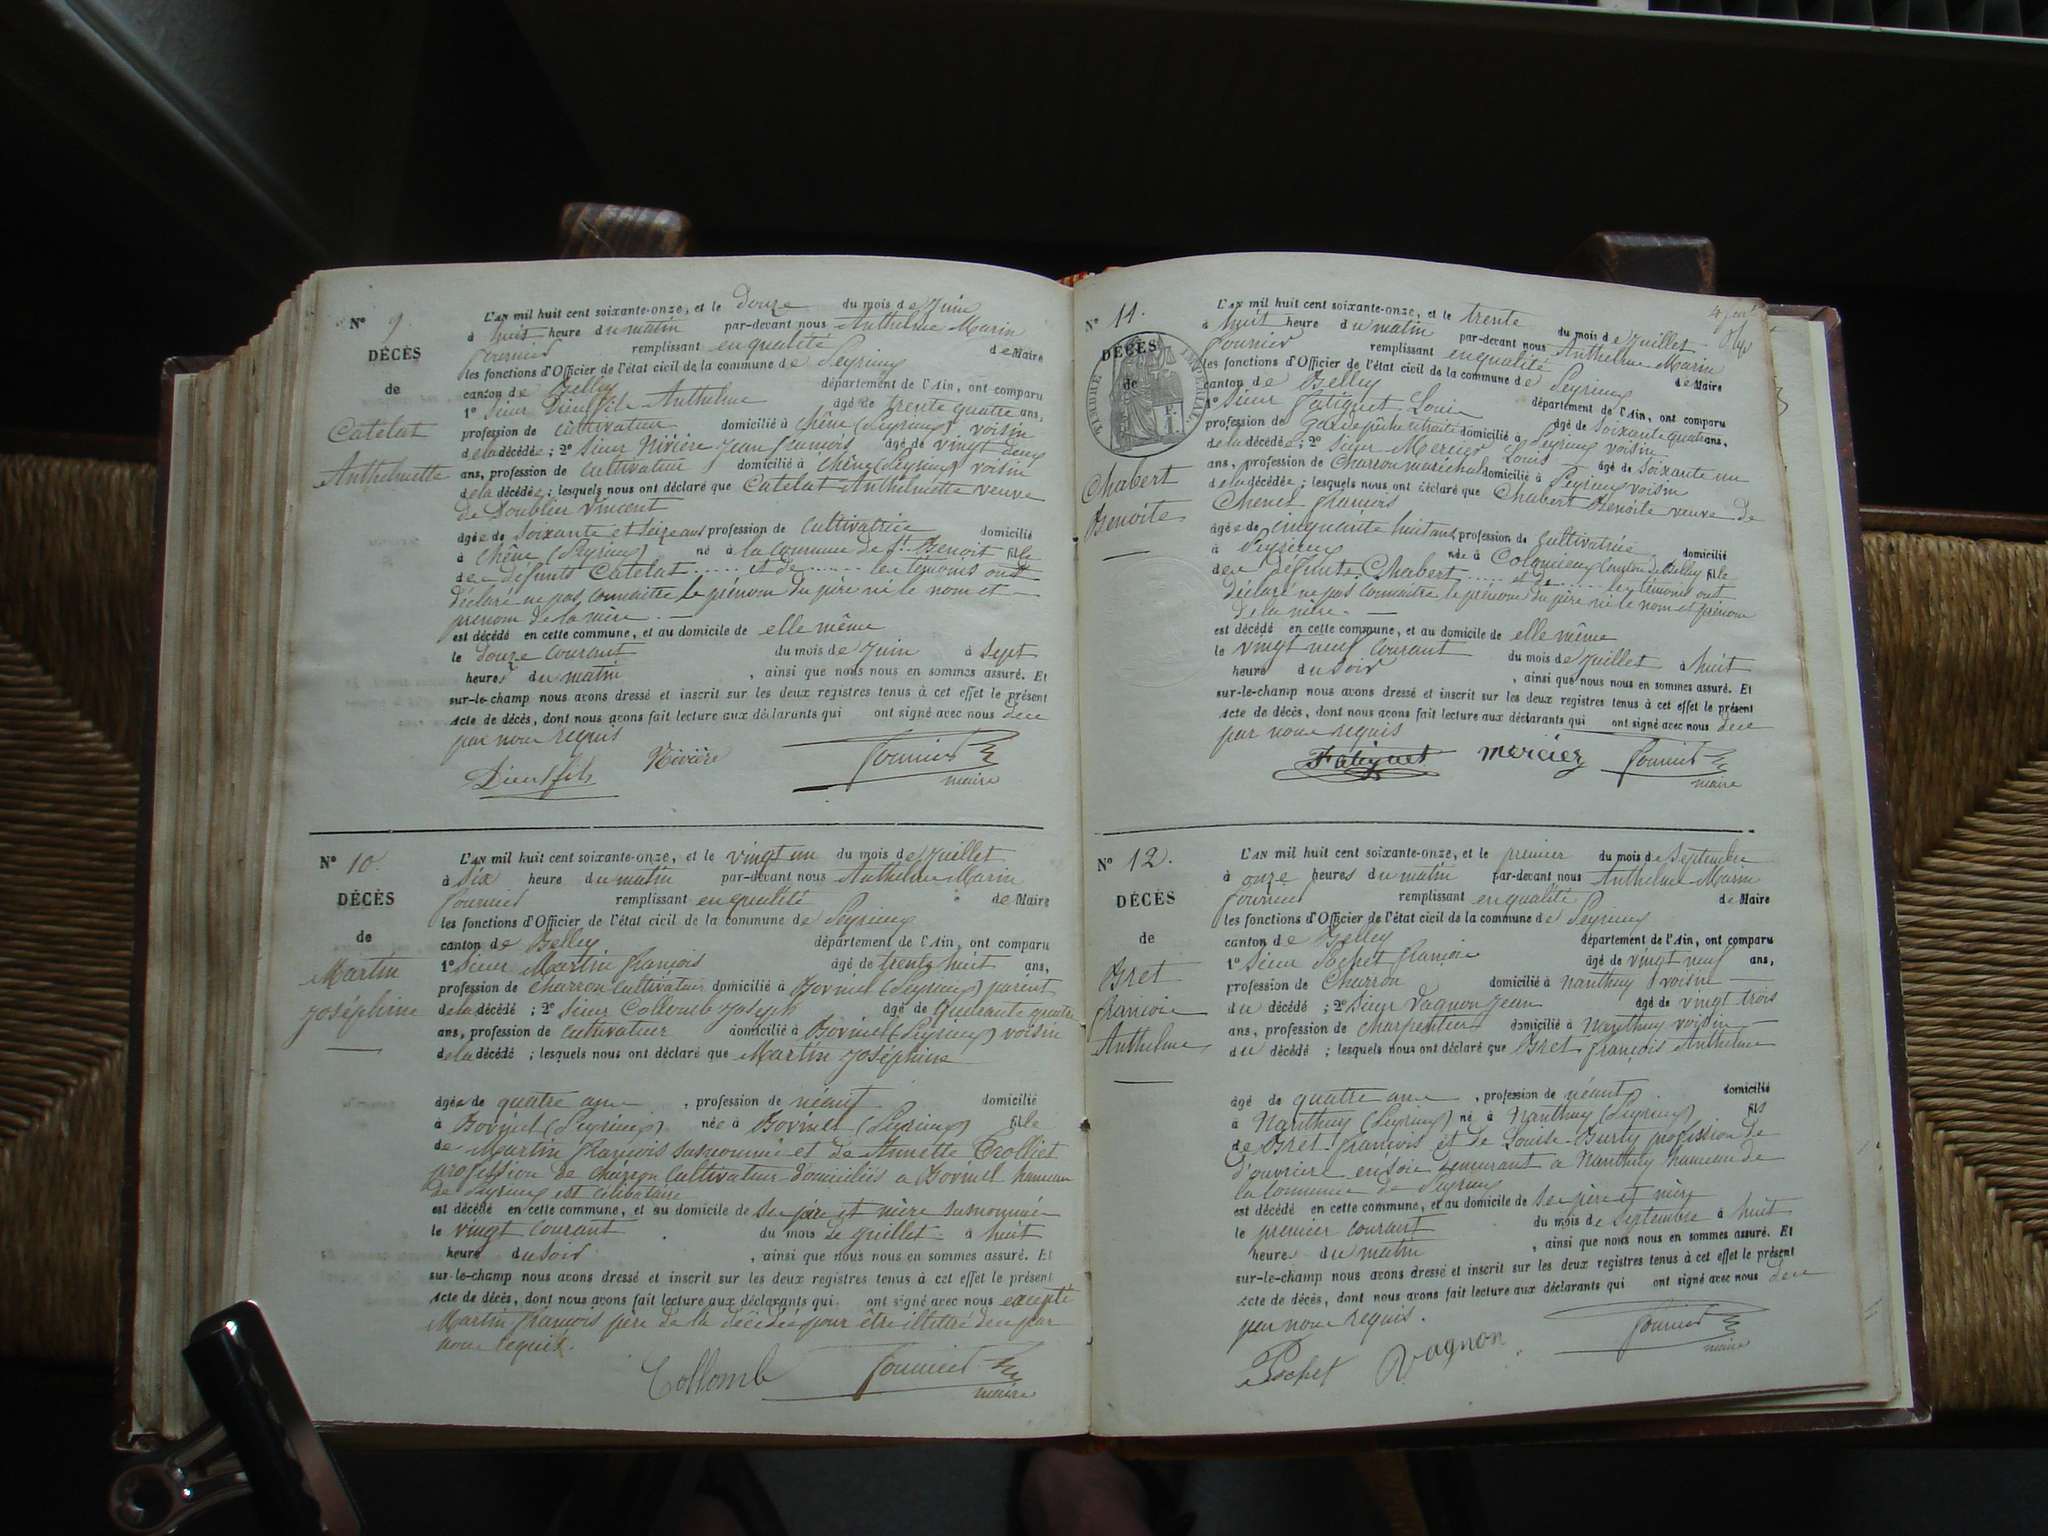 N° 9
DÉCÈS
de
Catelat
Anthelmette
L'AN mil huit cent soixante-onze, et le douze du mois de Juin
à huit heure du matin par-devant nous Anthelme Marin
Fournier remplissant en qualité de Maire
les fonctions d'Officier de l'état civil de la commune de Peyrieu
canton de Belley département de l'Ain, ont comparu
1° Sieur Dieufils Anthelme âgé de trente quatre ans,
profession de cultivateur domicilié à Chêne (Peyrieu) voisin
de la décédée ; 2° Sieur Nivière Jean François âgé de vingt deux
ans, profession de cultivateur domicilié à Chêne (Peyrieu) voisin
de la décédée ; lesquels nous ont déclaré que Catelat Anthelmette veuve
de Doublier Vincent
âgée de soixante et seize ans profession de cultivatrice domicilié
à Chêne (Peyrieu) né à la commune de St. Benoit fille
des défunts Catelat ..... et de ....... les témoins ont
déclaré ne pas connaitre le prénom du père ni le nom et
prénom de la mère.
est décédé en cette commune, et au domicile de elle même
le douze courant du mois de Juin à sept
heures du matin , ainsi que nous nous en sommes assuré. Et
sur-le-champ nous avons dressé et inscrit sur les deux registres tenus à cet effet le présent
acte de décès, dont nous avons fait lecture aux déclarants qui ont signé avec nous de ce
par nous requis
Dieufils Nivière Fournier
maire
N° 10.
DÉCÈS
de
Martin
Joséphine
L'AN mil huit cent soixante-onze, et le vingt un du mois de Juillet
à six heure du matin par-devant nous Anthelme Marin
Fournier remplissant en qualité de Maire
les fonctions d'Officier de l'état civil de la commune de Peyrieu
canton de Belley département de l'Ain, ont comparu
1° Sieur Martin François âgé de trente huit ans,
profession de Charron cultivateur domicilié à Bovinel (Peyrieu) parent
de la décédé ; 2° Sieur Collomb Joseph âgé de quarante quatre
ans, profession de cultivateur domicilié à Bovinel (Peyrieu) voisin
de la décédé ; lesquels nous ont déclaré que Martin Joséphine
âgée de quatre ans , profession de néant domicilié
à Bovinel (Peyrieu) née à Bovinel (Peyrieu) fille
de Martin François susnommé et de Annette Trolliet
profession de charron cultivateur domiciliés a Bovinel hameau
de Peyrieu est célibataire
est décédé en cette commune, et au domicile de ses père et mère susnommés
le vingt courant du mois de Juillet à huit
heure du soir , ainsi que nous nous en sommes assuré. Et
sur-le-champ nous avons dressé et inscrit sur les deux registres tenus à cet effet le présent
acte de décès, dont nous avons fait lecture aux déclarants qui ont signé avec nous excepté
Martin François père de la décédée pour être illétré de ce par
nous requis.
Collomb Fournier
maire
N° 11.
DÉCÈS
de
TIMBRE IMPERIAL
Chabert
Benoite
L'AN mil huit cent soixante-onze, et le trente du mois de Juillet
à huit heure du matin par-devant nous Anthelme Marin
Fournier remplissant en qualité de Maire
les fonctions d'Officier de l'état civil de la commune de Peyrieu
canton de Belley département de l'Ain, ont comparu
1° Sieur Fatiguet Louis âgé de soixante quatre ans,
profession de Garde pêche retraité domicilié à Peyrieu voisin
de la décédée ; 2° Sieur Mercier Louis âgé de soixante un
ans, profession de Charron maréchal domicilié à Peyrieu voisin
de la décédée ; lesquels nous ont déclaré que Chabert Benoite veuve de
François
âgée de cinquante huit ans profession de cultivatrice domicilié
à Peyrieu née à Colomieu Canton de Belley fille
des défunts Chabert ..... et de ..... les témoins ont
déclaré ne pas connaitre le prénom du père ni le nom et prénom
de la mère.
est décédé en cette commune, et au domicile de elle même
le vingt neuf courant du mois de Juillet à huit
heure du soir , ainsi que nous nous en sommes assuré. Et
sur-le-champ nous avons dressé et inscrit sur les deux registres tenus à cet effet le présent
acte de décès, dont nous avons fait lecture aux déclarants qui ont signé avec nous de ce
par nous requis
Fatiguet mercier Fournier
maire
N° 12.
DÉCÈS
de
Bret
François
Anthelme
L'AN mil huit cent soixante-onze, et le premier du mois de Septembre
à onze heures du matin par-devant nous Anthelme Marin
Fournier remplissant en qualité de Maire
les fonctions d'Officier de l'état civil de la commune de Peyrieu
canton de Belley département de l'Ain, ont comparu
1° Sieur Pochet François âgé de vingt neuf ans,
profession de Charron domicilié à Nanthuy voisin
du décédé ; 2° Sieur Vagnon Jean âgé de vingt trois
ans, profession de charpentier domicilié à Nanthuy voisin
du décédé ; lesquels nous ont déclaré que Bret François Anthelme
âgé de quatre ans , profession de néant domicilié
à Nanthuy (Peyrieu) né à Nanthuy (Peyrieu) fils
de Bret François et de Louise Burty profession de
d'ouvrier en soie demeurant a Nanthuy hameau de
la Commune de Peyrieu
est décédé en cette commune, et au domicile de ses père et mère
le premier courant du mois de Septembre à huit
heure du matin , ainsi que nous nous en sommes assuré. Et
sur-le-champ nous avons dressé et inscrit sur les deux registres tenus à cet effet le présent
acte de décès, dont nous avons fait lecture aux déclarants qui ont signé avec nous de ce
par nous requis.
Pochet Vagnon Fournier
maire